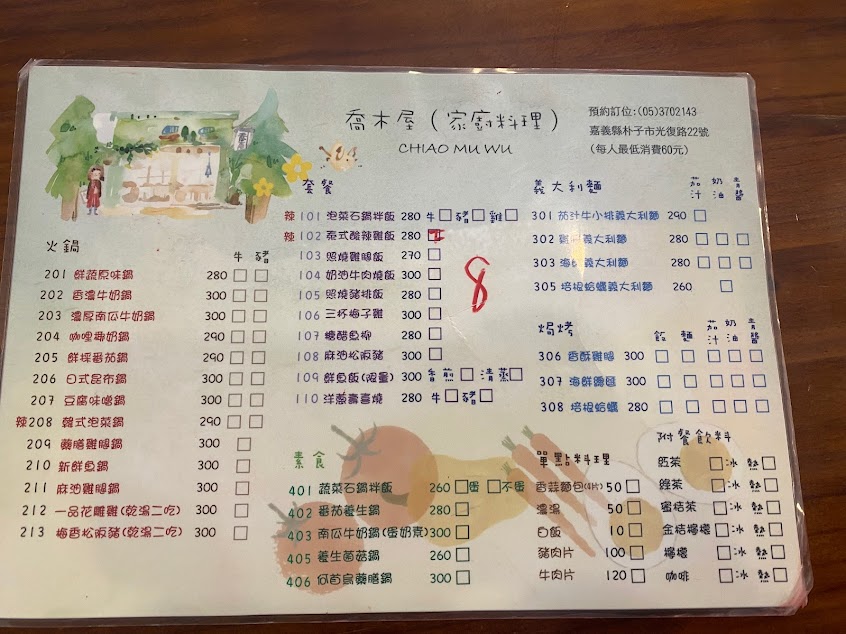 喬木屋(家廚料理)
CHIAO MU WU
預約訂位:(05)3702143
嘉義縣朴子市光復路22號
(每人最低消費60元)
火鍋
牛 豬
201 鮮蔬原味鍋 280
202 香濃牛奶鍋 300
203 濃厚南瓜牛奶鍋 300
204 咖哩椰奶鍋 290
205 鮮採番茄鍋 290
206 日式昆布鍋 300
207 豆腐味噌鍋 300
辣208 韓式泡菜鍋 290
209 藥膳雞腿鍋 300
210 新鮮魚鍋 300
211 麻油雞腿鍋 300
212 一品花雕雞(乾湯二吃) 300
213 梅香松阪豬(乾湯二吃) 300
套餐
辣 101 泡菜石鍋拌飯 280 牛 豬 雞
辣 102 泰式酸辣雞飯 280
103 照燒雞腿飯 270
104 奶油牛肉燒飯 300
105 照燒豬排飯 280
106 三杯梅子雞 300
107 糖醋魚柳 280
108 麻油松阪豬 300
109 鮮魚飯(限量) 300 香煎 清蒸
110 洋蔥壽喜燒 280 牛 豬
8
素食
401 蔬菜石鍋拌飯 260 蛋 不蛋
402 番茄養生鍋 280
403 南瓜牛奶鍋(蛋奶素) 300
405 養生菌菇鍋 260
406 何首烏藥膳鍋 300
義大利麵
茄汁 奶油 青醬
301 茄汁牛小排義大利麵 290
302 雞肉義大利麵 280
303 海鮮義大利麵 280
305 培根蛤蠣義大利麵 260
焗烤
飯 麵 茄汁 奶油 青醬
306 香酥雞腿 300
307 海鮮總匯 300
308 培根蛤蠣 280
單點料理
香蒜麵包(4片) 50
濃湯 50
白飯 10
豬肉片 100
牛肉片 120
附餐飲料
紅茶 冰 熱
綠茶 冰 熱
蜜桔茶 冰 熱
金桔檸檬 冰 熱
檸檬 冰 熱
咖啡 冰 熱